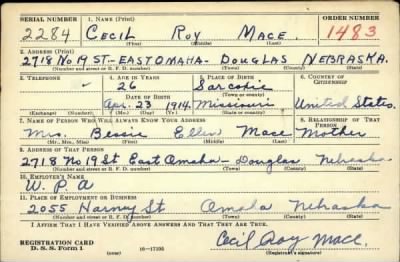 SERIAL NUMBER 1. NAME (Print) ORDER NUMBER
2284 CECIL ROY MACE. 1483
(First) (Middle) (Last)
2. ADDRESS (Print)
2718 No 19 ST-EAST OMAHA- DOUGLAS NEBRASKA.
(Number and street or R. F. D. number) (Town) (County) (State)
3. TELEPHONE 4. AGE IN YEARS 5. PLACE OF BIRTH 6. COUNTRY OF CITIZENSHIP
26 Sarcoxie
DATE OF BIRTH (Town or county)
Apr. 23 1914. Missouri United States.
(Exchange) (Number) (Mo.) (Day) (Yr.) (State or country)
7. NAME OF PERSON WHO WILL ALWAYS KNOW YOUR ADDRESS 8. RELATIONSHIP OF THAT PERSON
Mrs. Bessie Ellen Mace Mother
(Mr., Mrs., Miss) (First) (Middle) (Last)
9. ADDRESS OF THAT PERSON
2718 No 19 St East Omaha- Douglas Nebraska
(Number and street or R. F. D. number) (Town) (County) (State)
10. EMPLOYER'S NAME
W. P. A
11. PLACE OF EMPLOYMENT OR BUSINESS
2055 Harney St Omaha Nebraska
(Number and street or R. F. D. number) (Town) (County) (State)
I AFFIRM THAT I HAVE VERIFIED ABOVE ANSWERS AND THAT THEY ARE TRUE.
REGISTRATION CARD
D. S. S. Form 1 16-17105 Cecil Roy Mace.
(Registrant's signature)